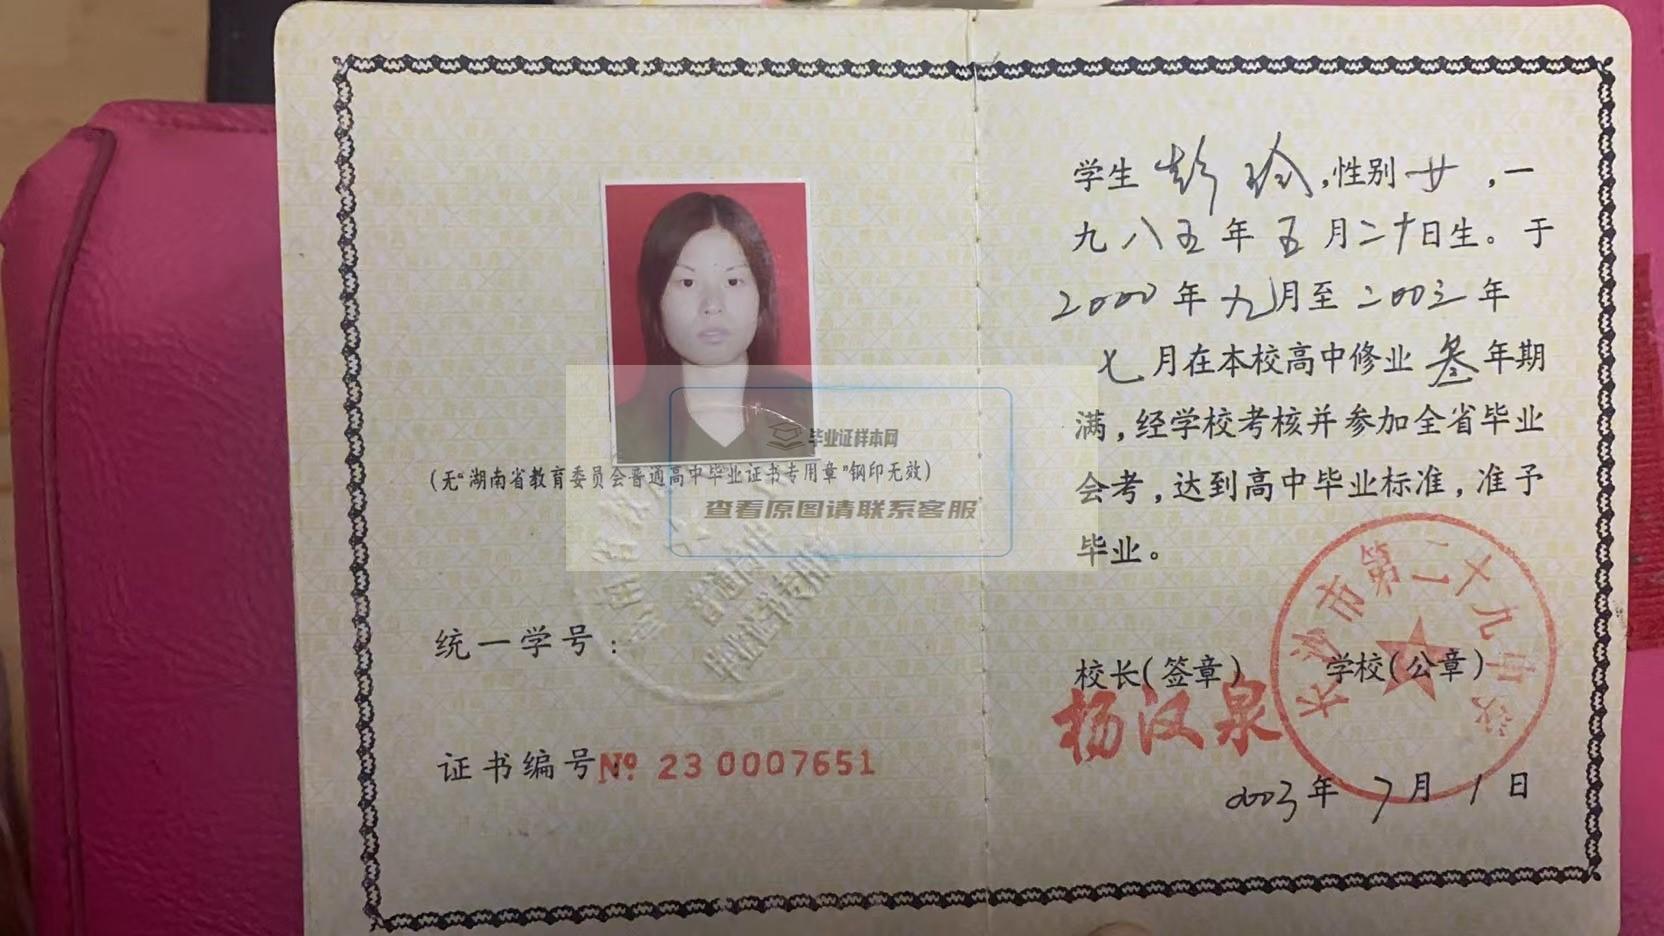 (无“湖南省教育委员会普通高中毕业证书专用章”钢印无效)
毕业证样本网
查看原图请联系客服
普通高中
毕业证书专用章
统一学号:
证书编号: № 23 0007651
学生 彭玲,性别 女,一
九八五年 五 月二十日生。于
2000 年 九月至 二00三 年
七 月在本校高中修业 叁 年期
满,经学校考核并参加全省毕业
会考,达到高中毕业标准,准予
毕业。
校长(签章) 学校(公章)
杨汉泉
长沙市第二十九中学校
2003年 7月 1日